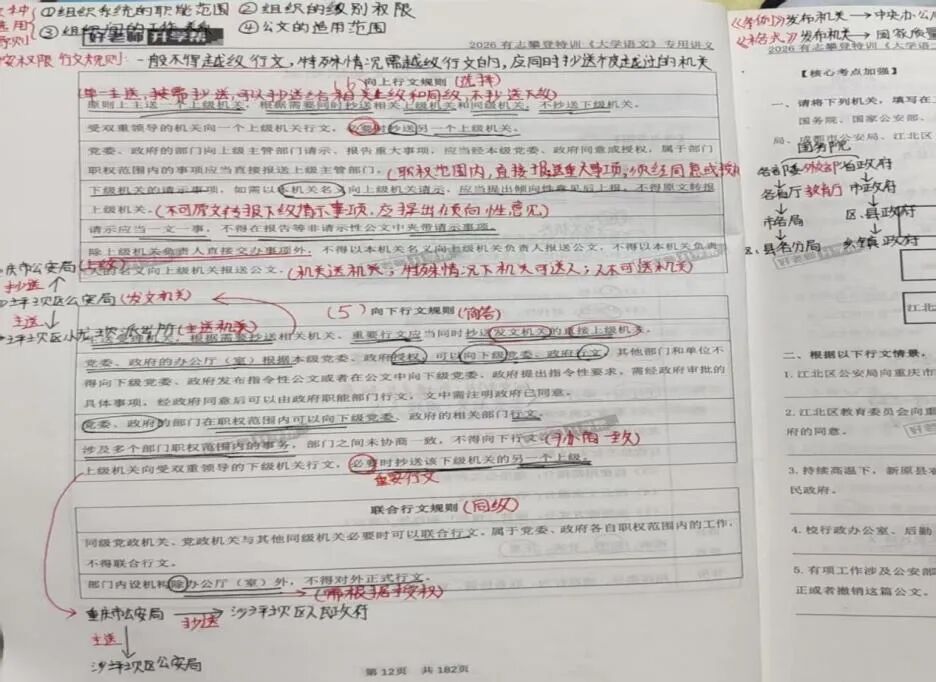 ①组织系统的职能范围 ②组织的级别权限
③组织间的工作关系 ④公文的适用范围
好老师 升学熊
2026 有志攀登特训《大学语文》专用讲义
行文规则：一般不得越级行文，特殊情况需越级行文的，应同时抄送被越过的机关
向上行文规则(选择)
(单一主送，按需抄送，可以抄送给相关上级和同级，不抄送下级)
原则上主送一个上级机关，根据需要同时抄送相关上级机关和同级机关，不抄送下级机关。
受双重领导的机关向一个上级机关行文，必要时抄送另一个上级机关。
党委、政府的部门向上级主管部门请示、报告重大事项，应当经本级党委、政府同意或授权，属于部门
职权范围内的事项应当直接报送上级主管部门。(职权范围内，直接报送重大事项，须经同意或授权
下级机关的请示事项，如需以本机关名义向上级机关请示，应当提出倾向性意见后上报，不得原文转报
上级机关。(不可原文转报下级请示事项，应提出倾向性意见)
请示应当一文一事，不得在报告等非请示性公文中夹带请示事项。
除上级机关负责人直接交办事项外，不得以本机关名义向上级机关负责人报送公文，不得以本机关负责
名义向上级机关报送公文。(机关送机关；特殊情况下机关可送人；人不可送机关)
庆市公安局(上级)
抄送
沙坪坝区公安局(发文机关)
主送
坪坝区小龙坎派出所(主送机关)
(5) 向下行文规则(简答)
主送受理机关，根据需要抄送相关机关。重要行文应当同时抄送发文机关的直接上级机关。
党委、政府的办公厅（室）根据本级党委、政府授权，可以向下级党委、政府行文，其他部门和单位不
得向下级党委、政府发布指令性公文或者在公文中向下级党委、政府提出指令性要求。需经政府审批的
具体事项，经政府同意后可以由政府职能部门行文，文中需注明政府已同意。
党委、政府的部门在职权范围内可以向下级党委、政府的相关部门行文。
涉及多个部门职权范围内的事务，部门之间未协商一致，不得向下行文(协商一致)
上级机关向受双重领导的下级机关行文，必要时抄送该下级机关的另一个上级。
重要行文
联合行文规则(同级)
同级党政机关、党政机关与其他同级机关必要时可以联合行文。属于党委、政府各自职权范围内的工作，
不得联合行文。
部门内设机构除办公厅（室）外，不得对外正式行文。
(需根据授权)
重庆市公安局 抄送 沙坪坝区人民政府
主送
沙坪坝区公安局
第12页 共182页
《条例》发布机关→中央办公厅
《格式》发布机关→国家质量
2026 有志攀登特训《大学语
【核心考点加强】
一、请将下列机关，填写在
国务院、国家公安部、
局、成都市公安局、江北区
国务院
各部委 省政府
各省厅 教育厅 市政府
市各局 区、县政府
区、县各分局 乡镇政府
江北
二、根据以下行文情景，
1. 江北区公安局向重庆市
2. 江北区教育委员会向重
府的同意。
3. 持续高温下，新原县
民政府。
4. 校行政办公室、后勤
5. 有项工作涉及公安部
正或者撤销这篇公文。